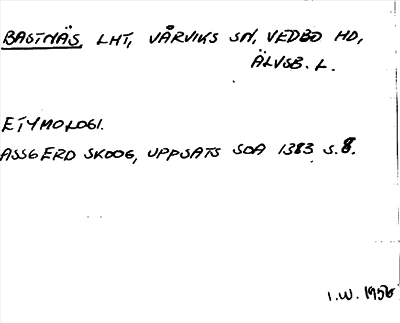 BASTNÄS, LHT, VÅRVIKS SN, VEDBO HD,
ÄLVSB. L.
ETYMOLOGI.
ASSGERD SKOOG, UPPSATS SOA 1383 S.8.
I.W. 1956